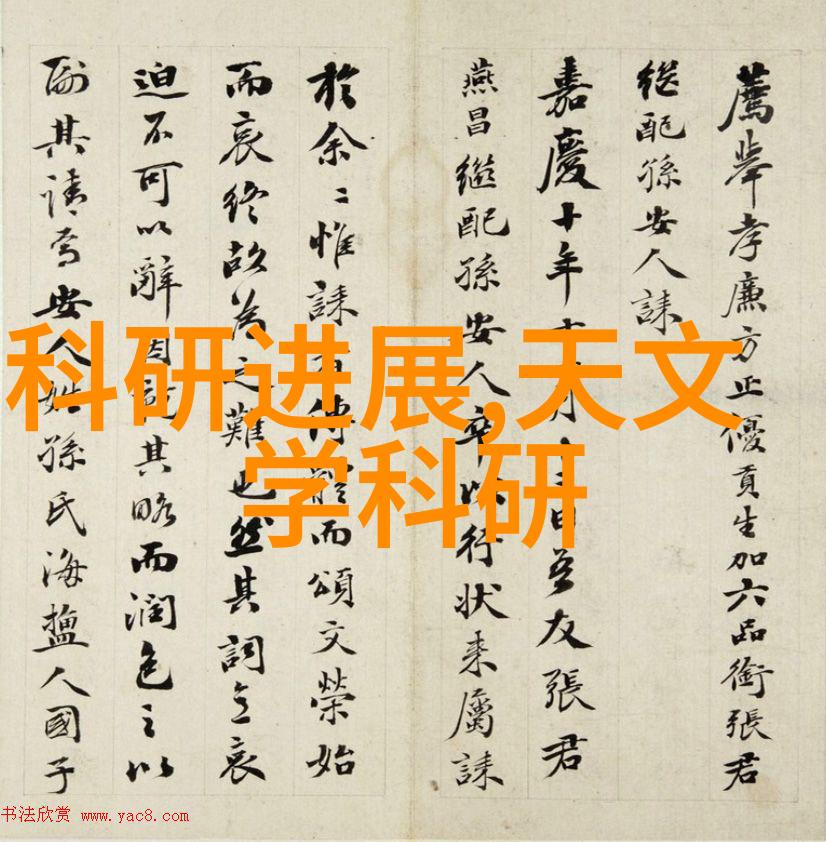 薦舉孝廉方正優貢生加六品銜張君
继配孫安人誄
嘉慶十年月日吾友張君
燕昌繼配孫安人卒以行状来屬誄
於余〻惟誄傳體而頌文榮始
而哀終故為之難也然其詞哀
迫不可以辭因其略而潤色之以
副其請安人姓孫氏海鹽人國子
科研进展,天文
学科研
书法欣赏 www.yac8.com